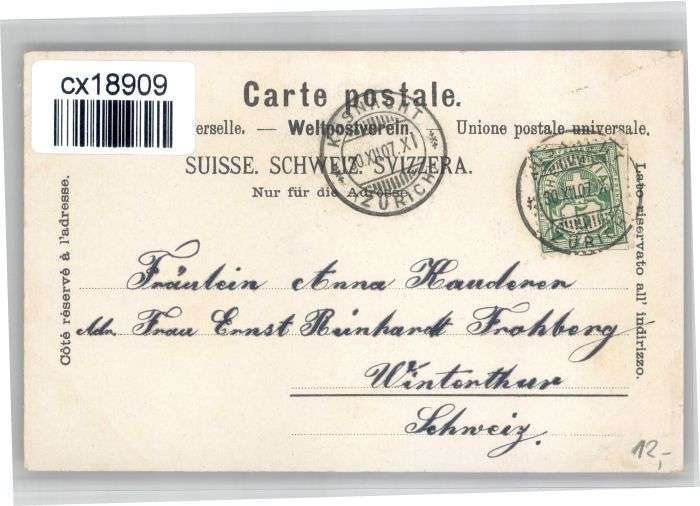 cx18909
Carte postale.
erselle. — Weltpostverein. Unione postale universale.
SUISSE. SCHWEIZ. SVIZZERA.
Nur für die Adresse
Côté réservé à l'adresse.
Lato riservato all' indirizzo.
30.XII.07.XI
ZÜRICH
30.XII.07.X
Fräulein Anna Kauderer
Adr. Frau Ernst Reinhardt Frohberg
Winterthur
Schweiz.
12,-